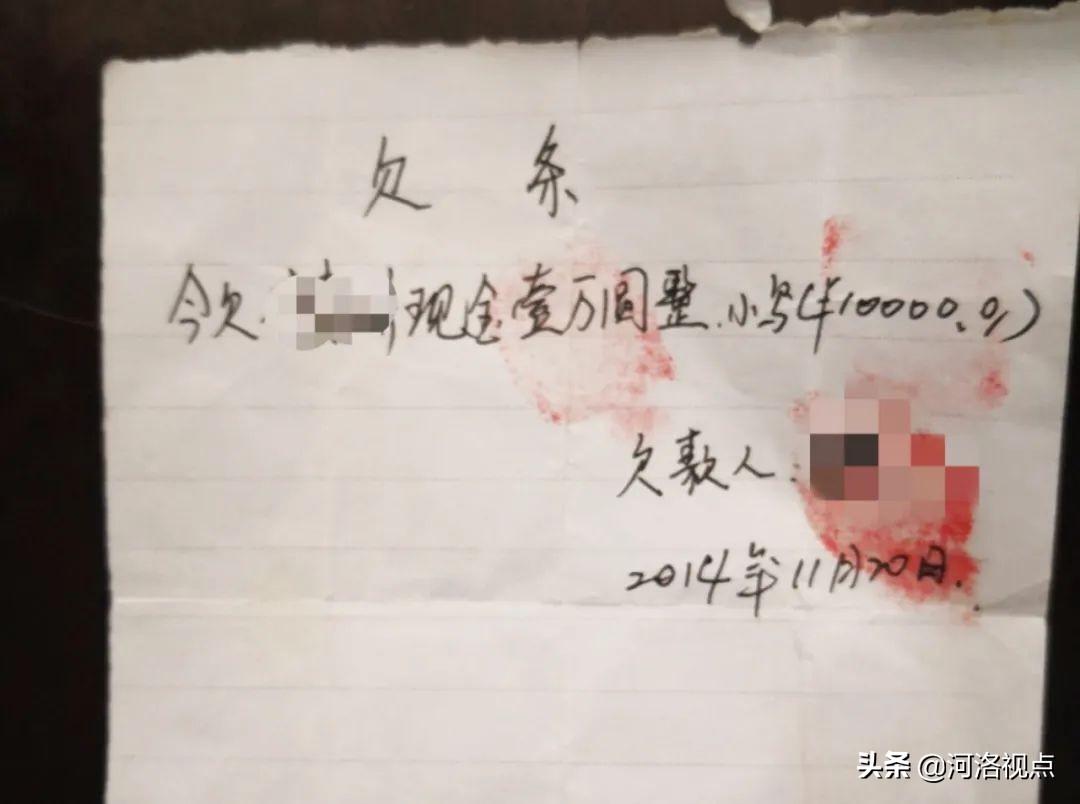 欠 条
今欠 现金壹万圆整.小写(¥10000.0)
欠款人:
2014年11月20日.
头条 @河洛视点